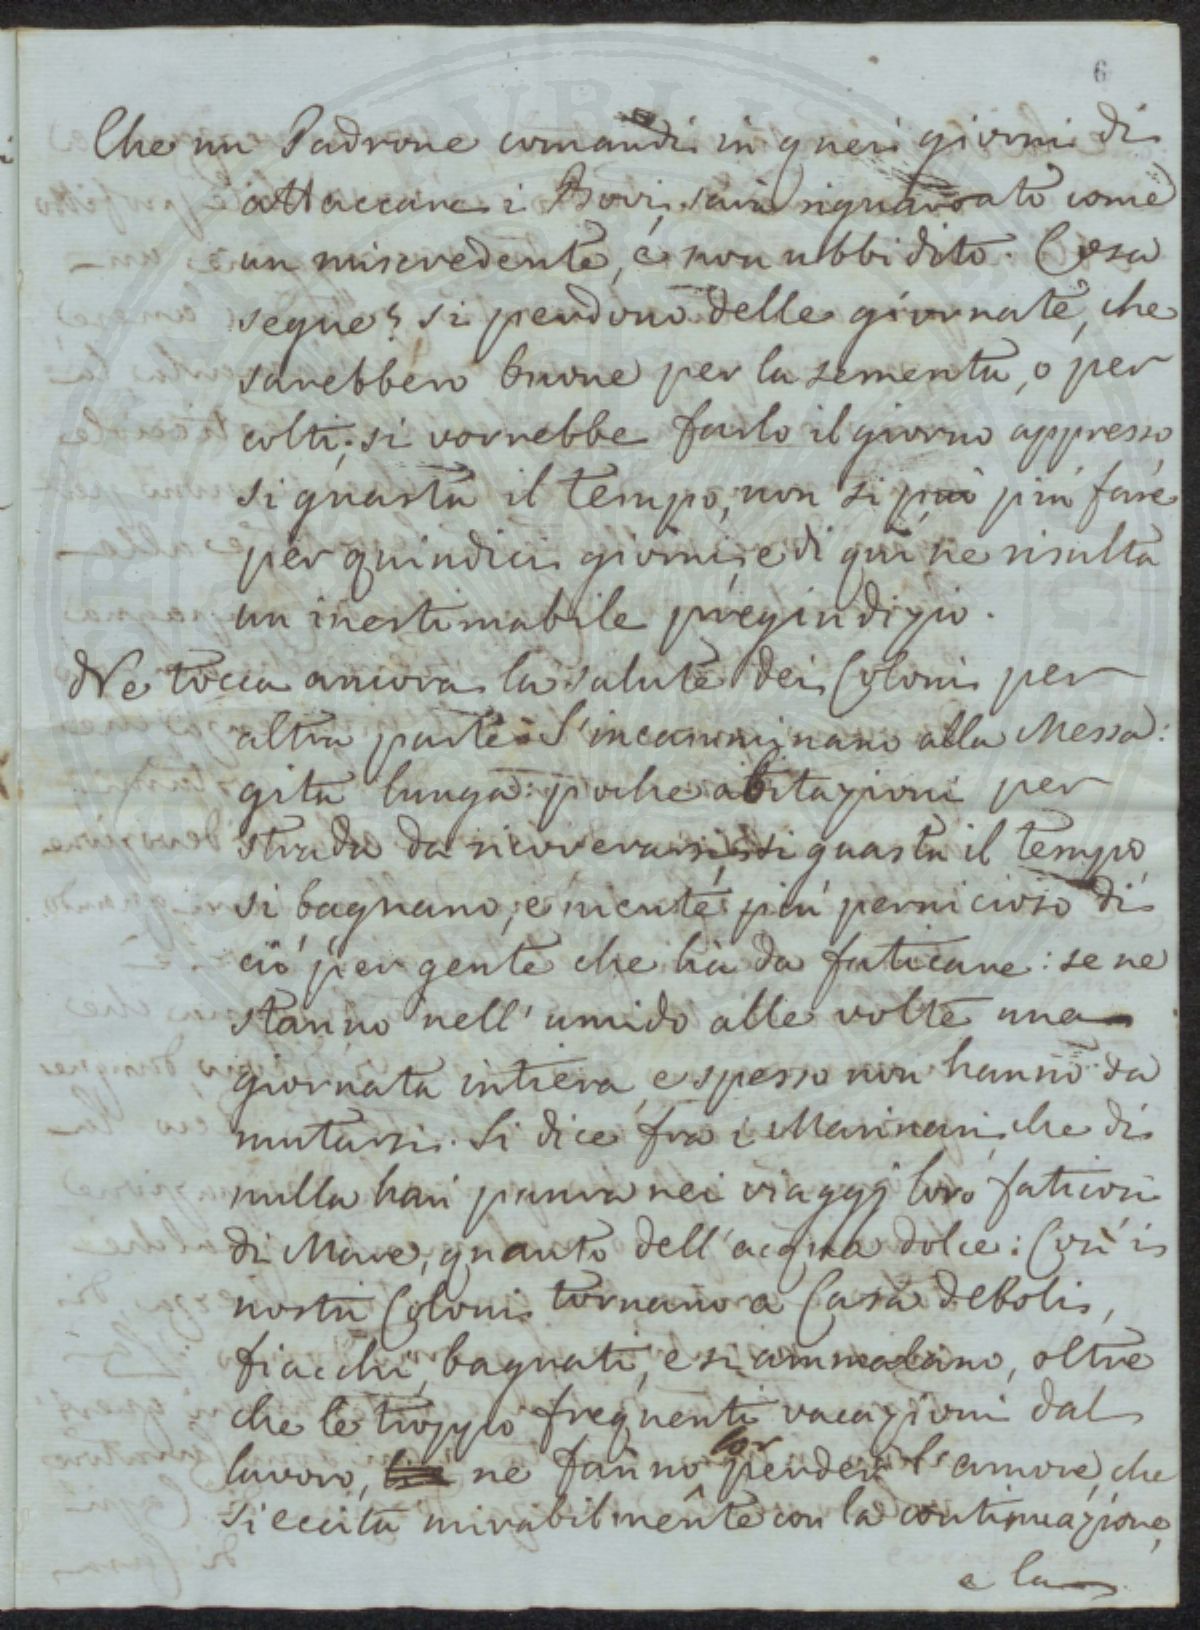 6
Che un Padrone comandi in quei giorni di
attaccare i Bovi, sarà riguardato come
un miscredente, é non ubbidito. Cosa
segue? si perdono delle giornate, che
sarebbero buone per la sementa, o per
colti; si vorrebbe farlo il giorno appresso
si guasta il tempo, non si può più fare
per quindici giorni, e di quì ne risulta
un inestimabile pregiudizio.
Ne tocca ancora la salute dei Coloni per
altra parte. S'incamminano alla Messa:
gita lunga: poche abitazioni per
strada da ricoverarsi, si guasta il tempo
si bagnano, e niente più pernicioso di
ciò per gente che hà da faticare: se ne
stanno nell'umido alle volte una
giornata intiera, e spesso non hanno da
mutarsi. Si dice fra i Marinari, che di
nulla han paura nei viaggj loro faticosi
di Mare, quanto dell'acqua dolce: Così i
nostri Coloni tornano a Casa deboli,
fiacchi, bagnati, e si ammalano, oltre
che le troppo frequenti vacazioni dal
lavoro, ne fanno lor perder l'amore, che
si eccita mirabilmente con la continuazione,
e la